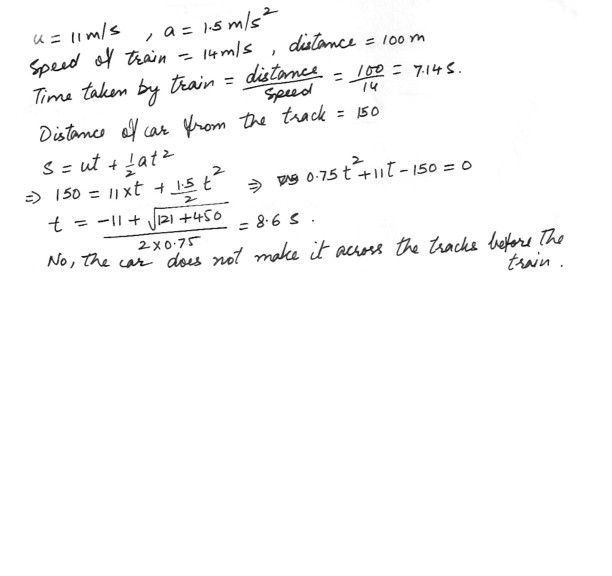 u = 11 m/s , a = 1.5 m/s²
Speed of train = 14 m/s , distance = 100 m
Time taken by train = distance/speed = 100/14 = 7.14 s.
Distance of car from the track = 150
s = ut + 1/2 at²
⇒ 150 = 11 × t + 1.5/2 t² ⇒ 0.75 t² + 11t - 150 = 0
t = (-11 + √(121 + 450))/(2 × 0.75) = 8.6 s .
No, the car does not make it across the tracks before the
train .